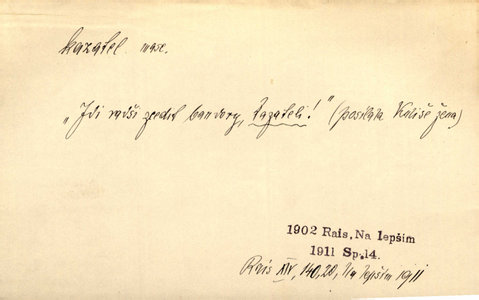 kazatel masc.
„Jdi radši zredit bandory, kazateli!" (posílala Kališe žena)
1902 Rais, Na lepším
1911 Sp.14.
Rais XIV, 140,20, Na lepším 1911